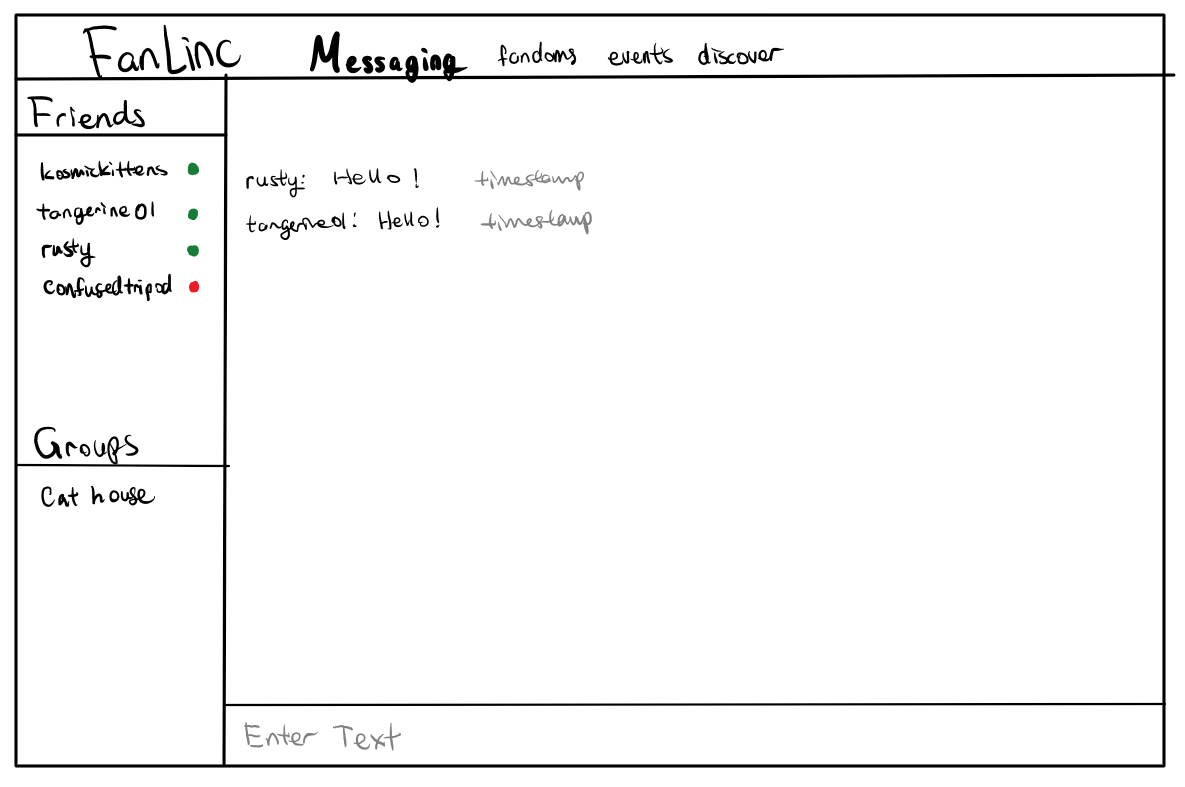 FanLinc Messaging fandoms events discover
Friends
kosmickittens
tangerine01
rusty
confusedtripod
Groups
Cat house
rusty: Hello! timestamp
tangerine01: Hello! timestamp
Enter Text